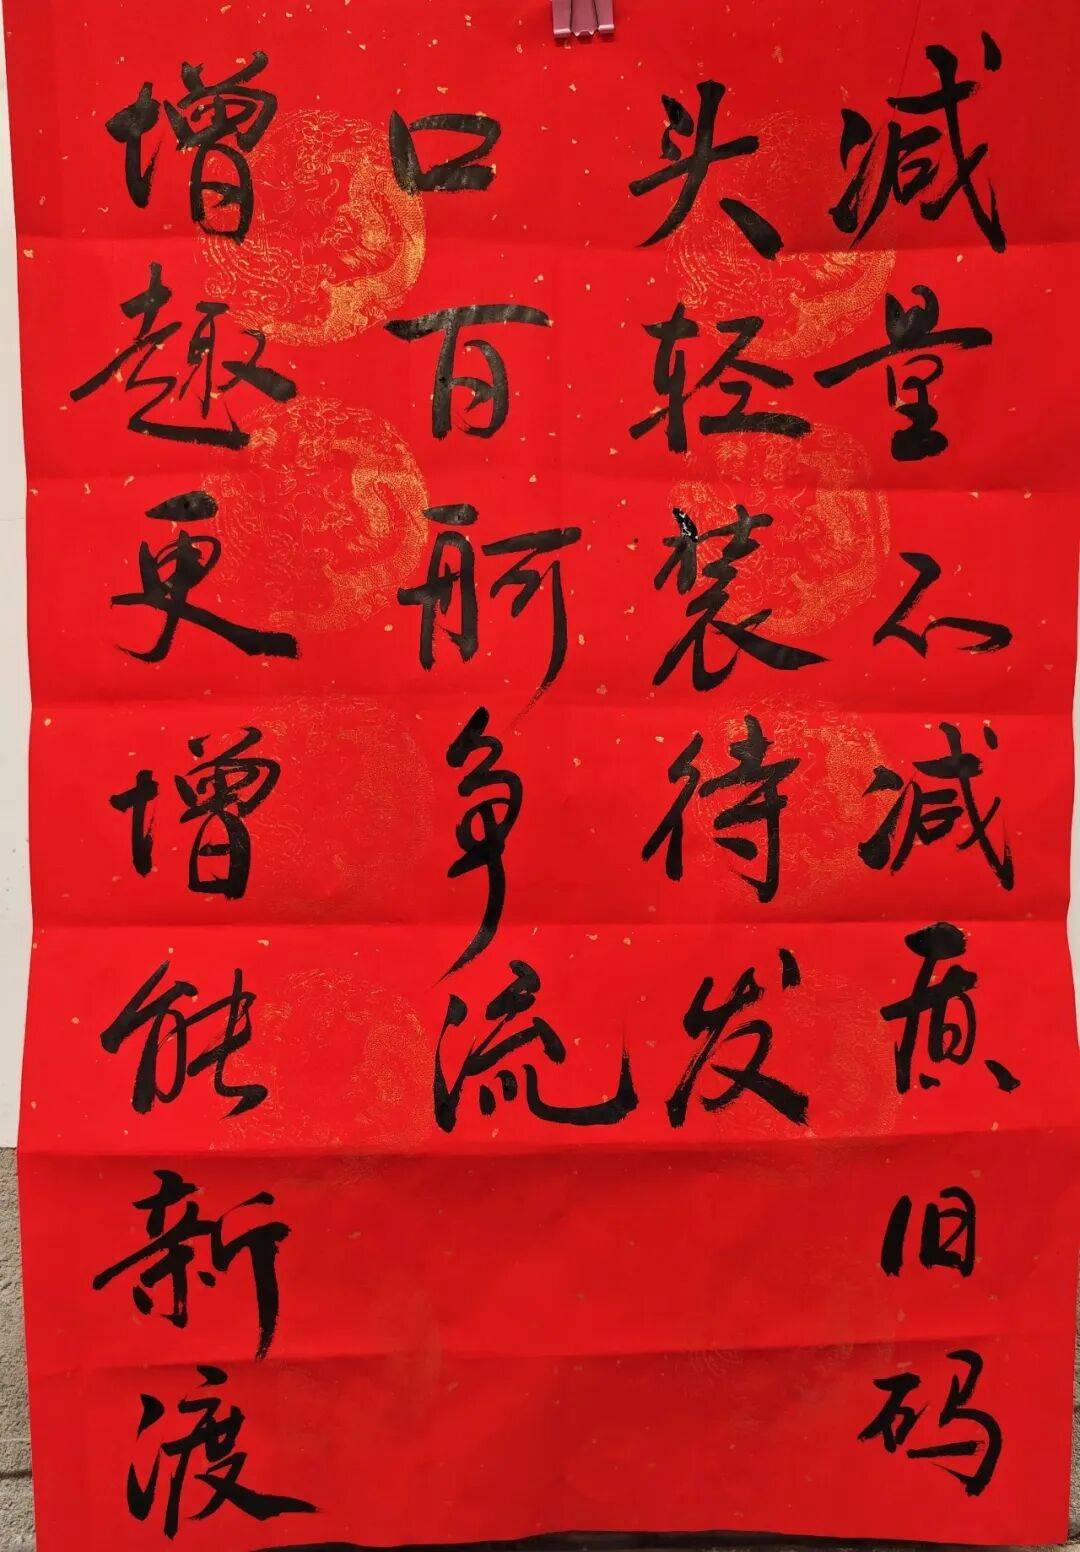 减量不减质旧码
头轻装待发
增趣更增能新渡
口百舸争流